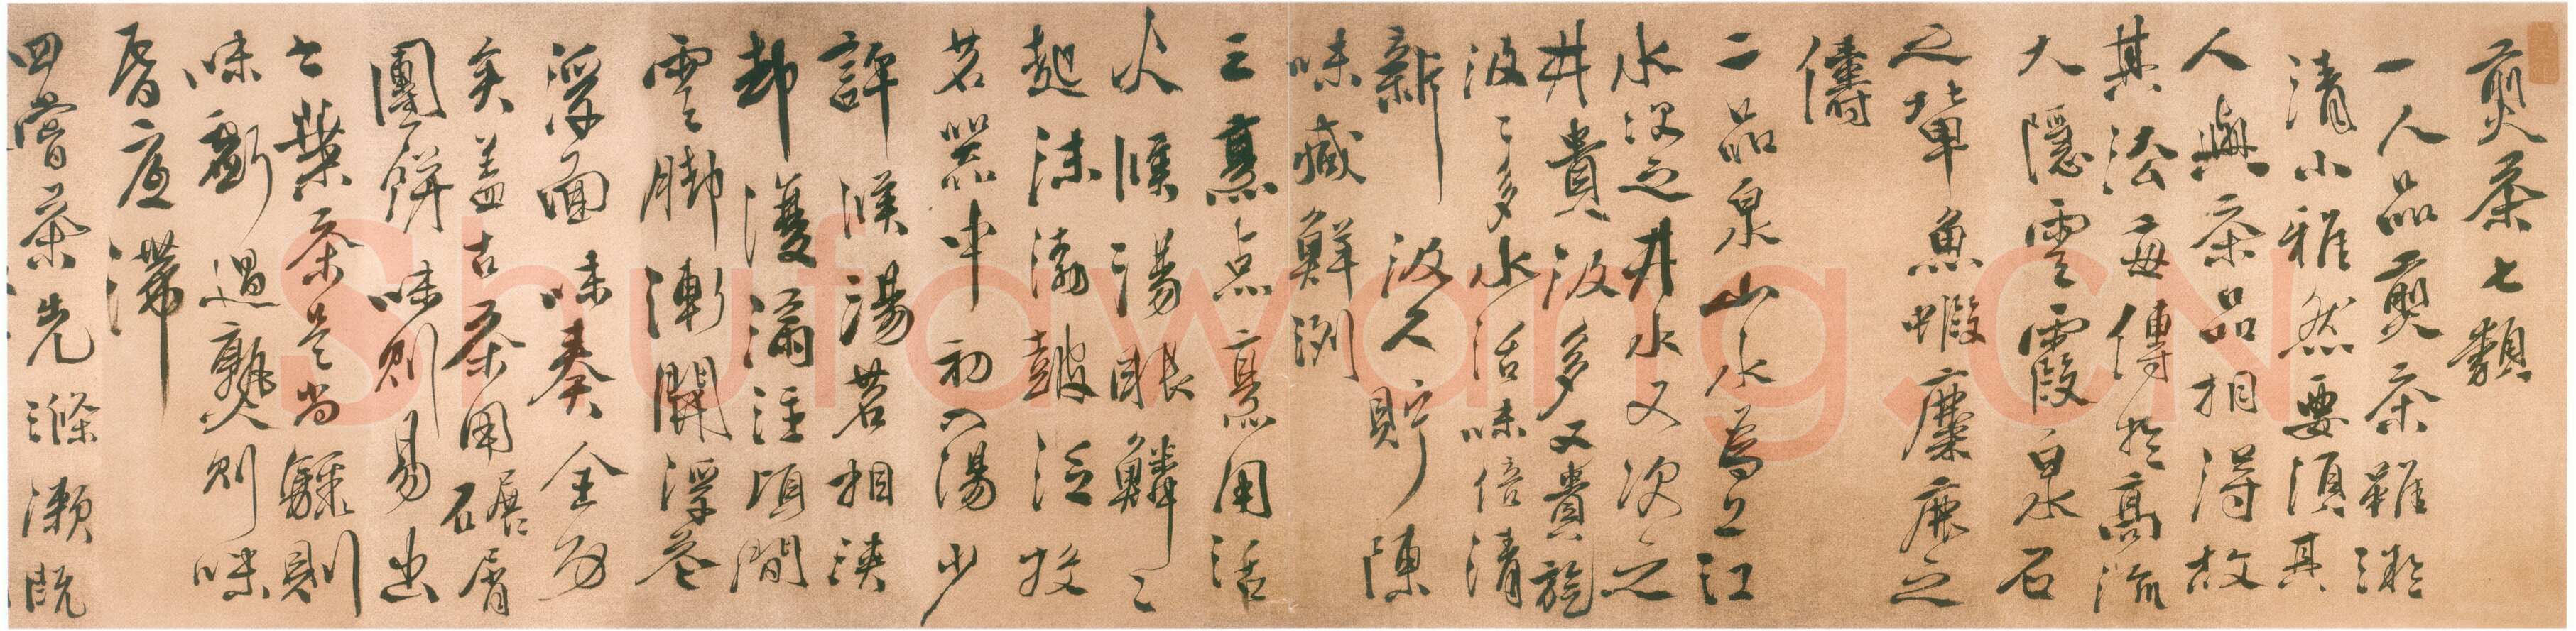 煎茶七類
一人品煎茶雖微
清小雅然要須其
人與茶品相得故
其法每傳於高流
大隱雲霞泉石
之輩魚蝦麋鹿之
儔
二品泉山水為上江
水次之井水又次之
井貴汲多又貴旋
汲汲多水活味倍清
新汲久貯陳
味減鮮洌
三烹点烹用活
火候湯眼鱗鱗
起沫渤鼓泛投
茗器中初入湯少
許候湯茗相浹
却復滿注頃間
雲腳漸開浮花
浮面味奏全功
矣蓋古茶用碾屑
團餅味則易出
今葉茶是尚驟則
味虧過熟則味
昏底滯
四嘗茶先滌漱既
Shufawang.CN